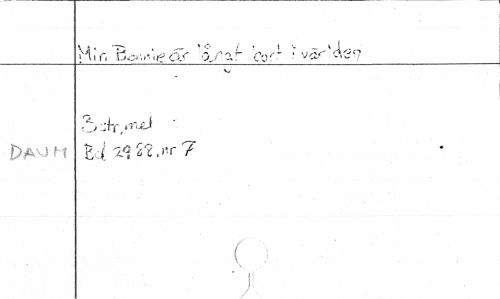 Min Bonnie är långt bort i världen
3 str, mel
DAUM Bd 2988, nr 7